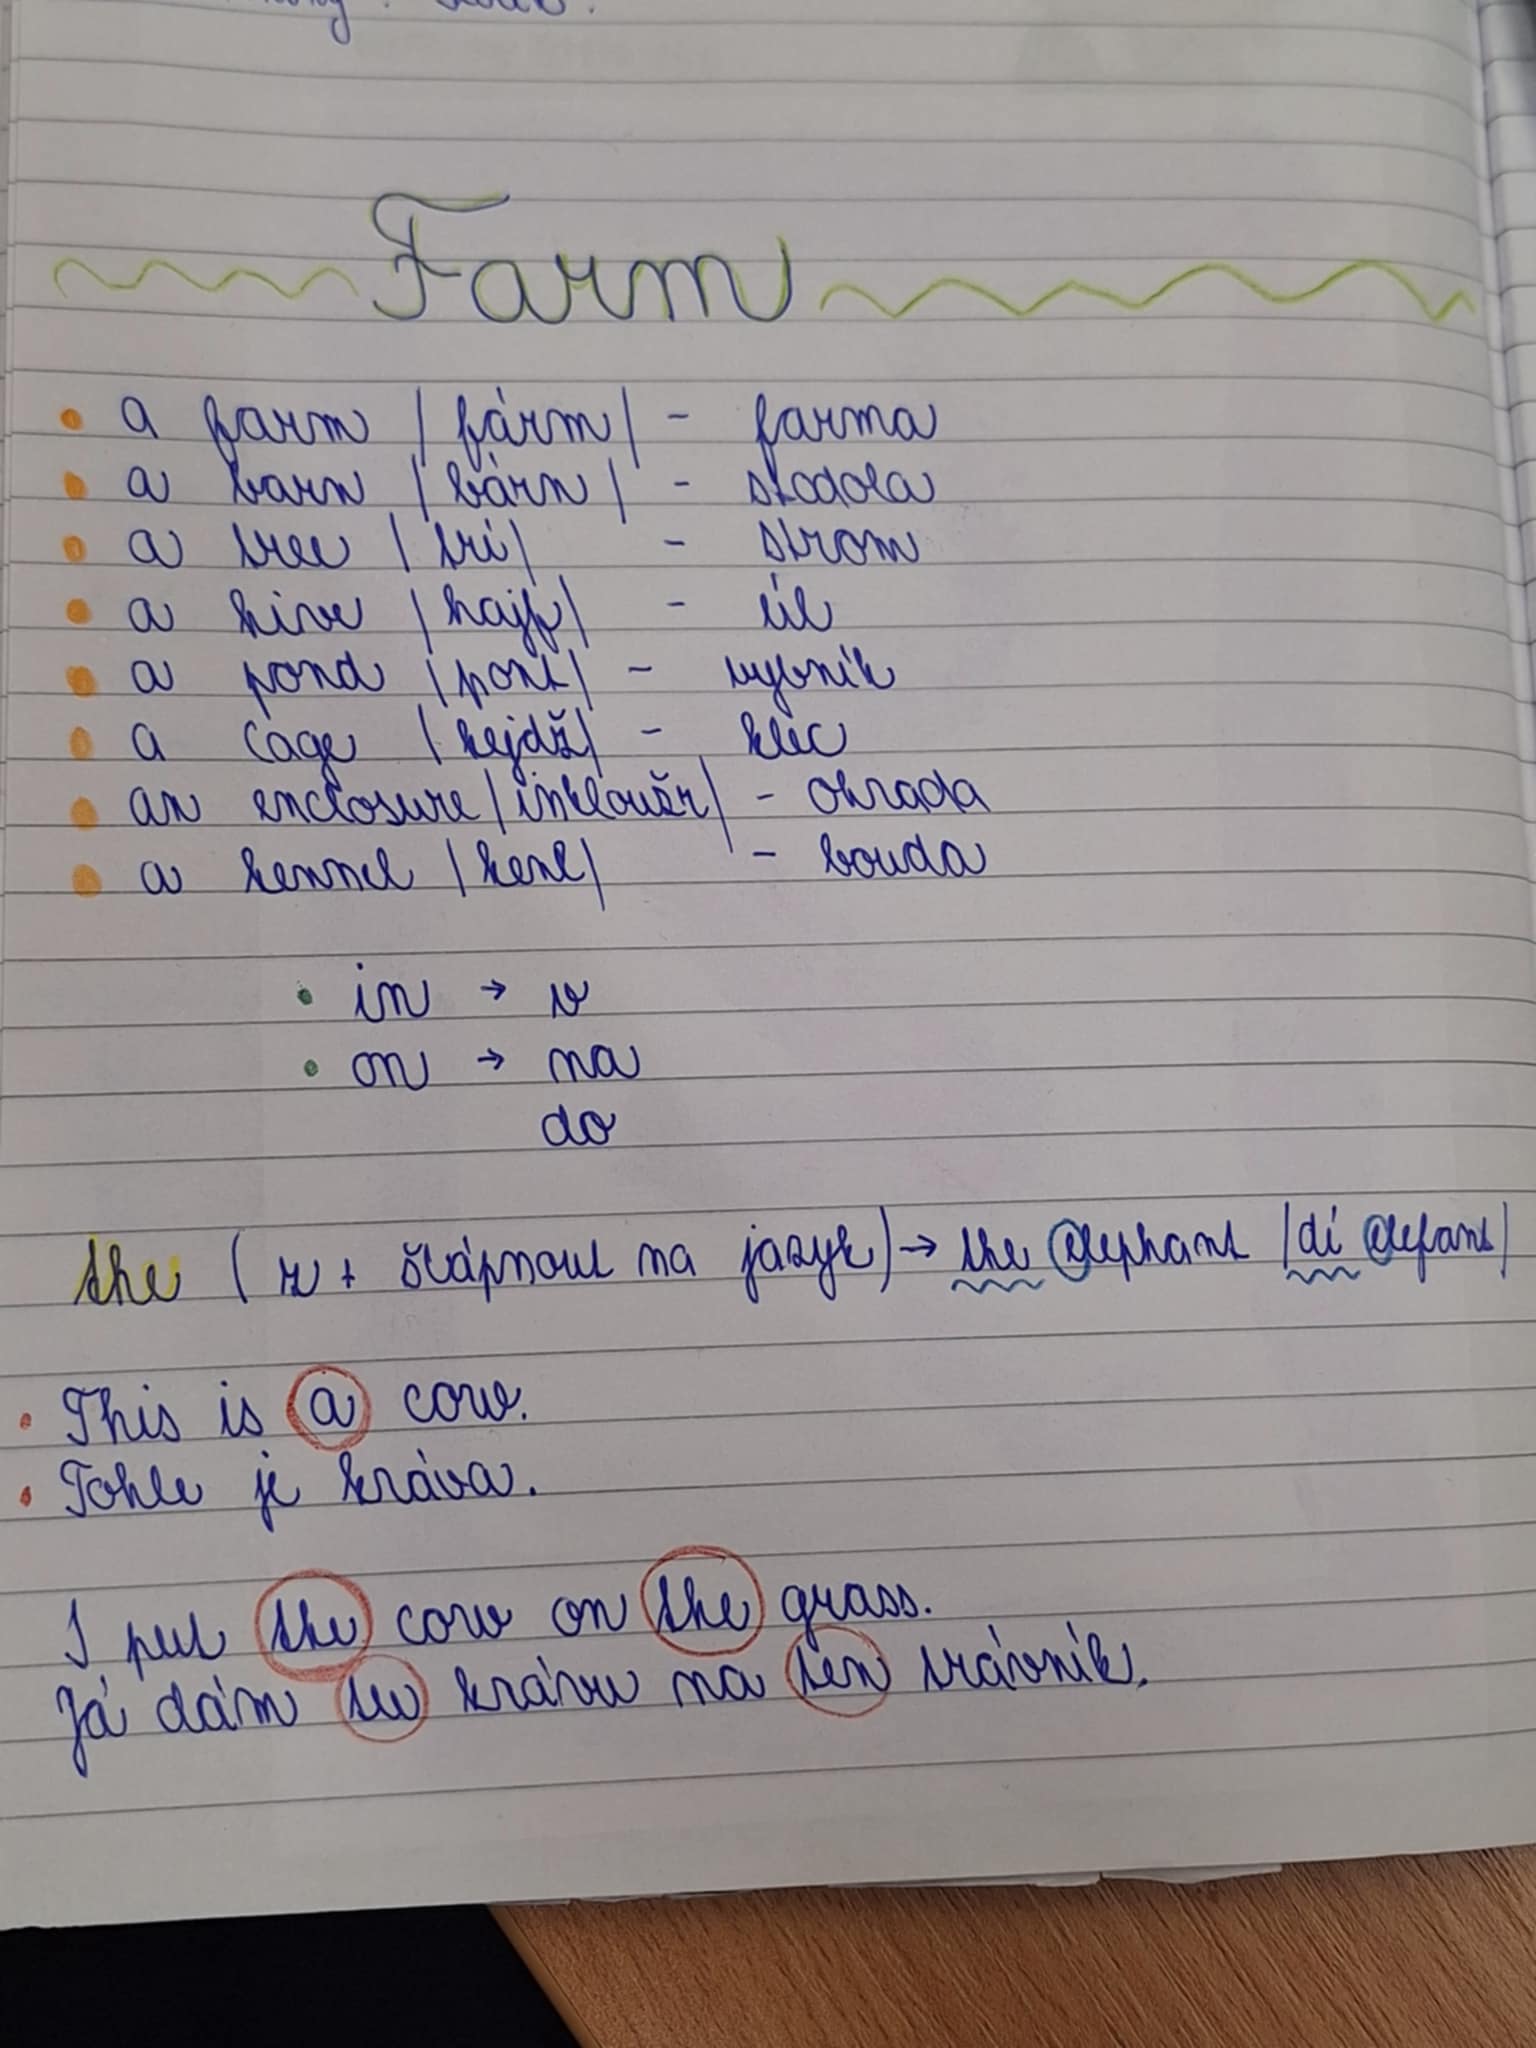 Farm
a farm |fárm| - farma
a barn |bárn| - stodola
a tree |trí| - strom
a hive |hajf| - úl
a pond |pont| - rybník
a cage |kejdž| - klec
an enclosure |inkloužr| - ohrada
a kennel |kenl| - bouda
in → v
on → na
do
the ( z + šlápnout na jazyk) → the elephant |dí elefant|
This is a cow.
Tohle je kráva.
I put the cow on the grass.
Já dám tu krávu na ten trávník.